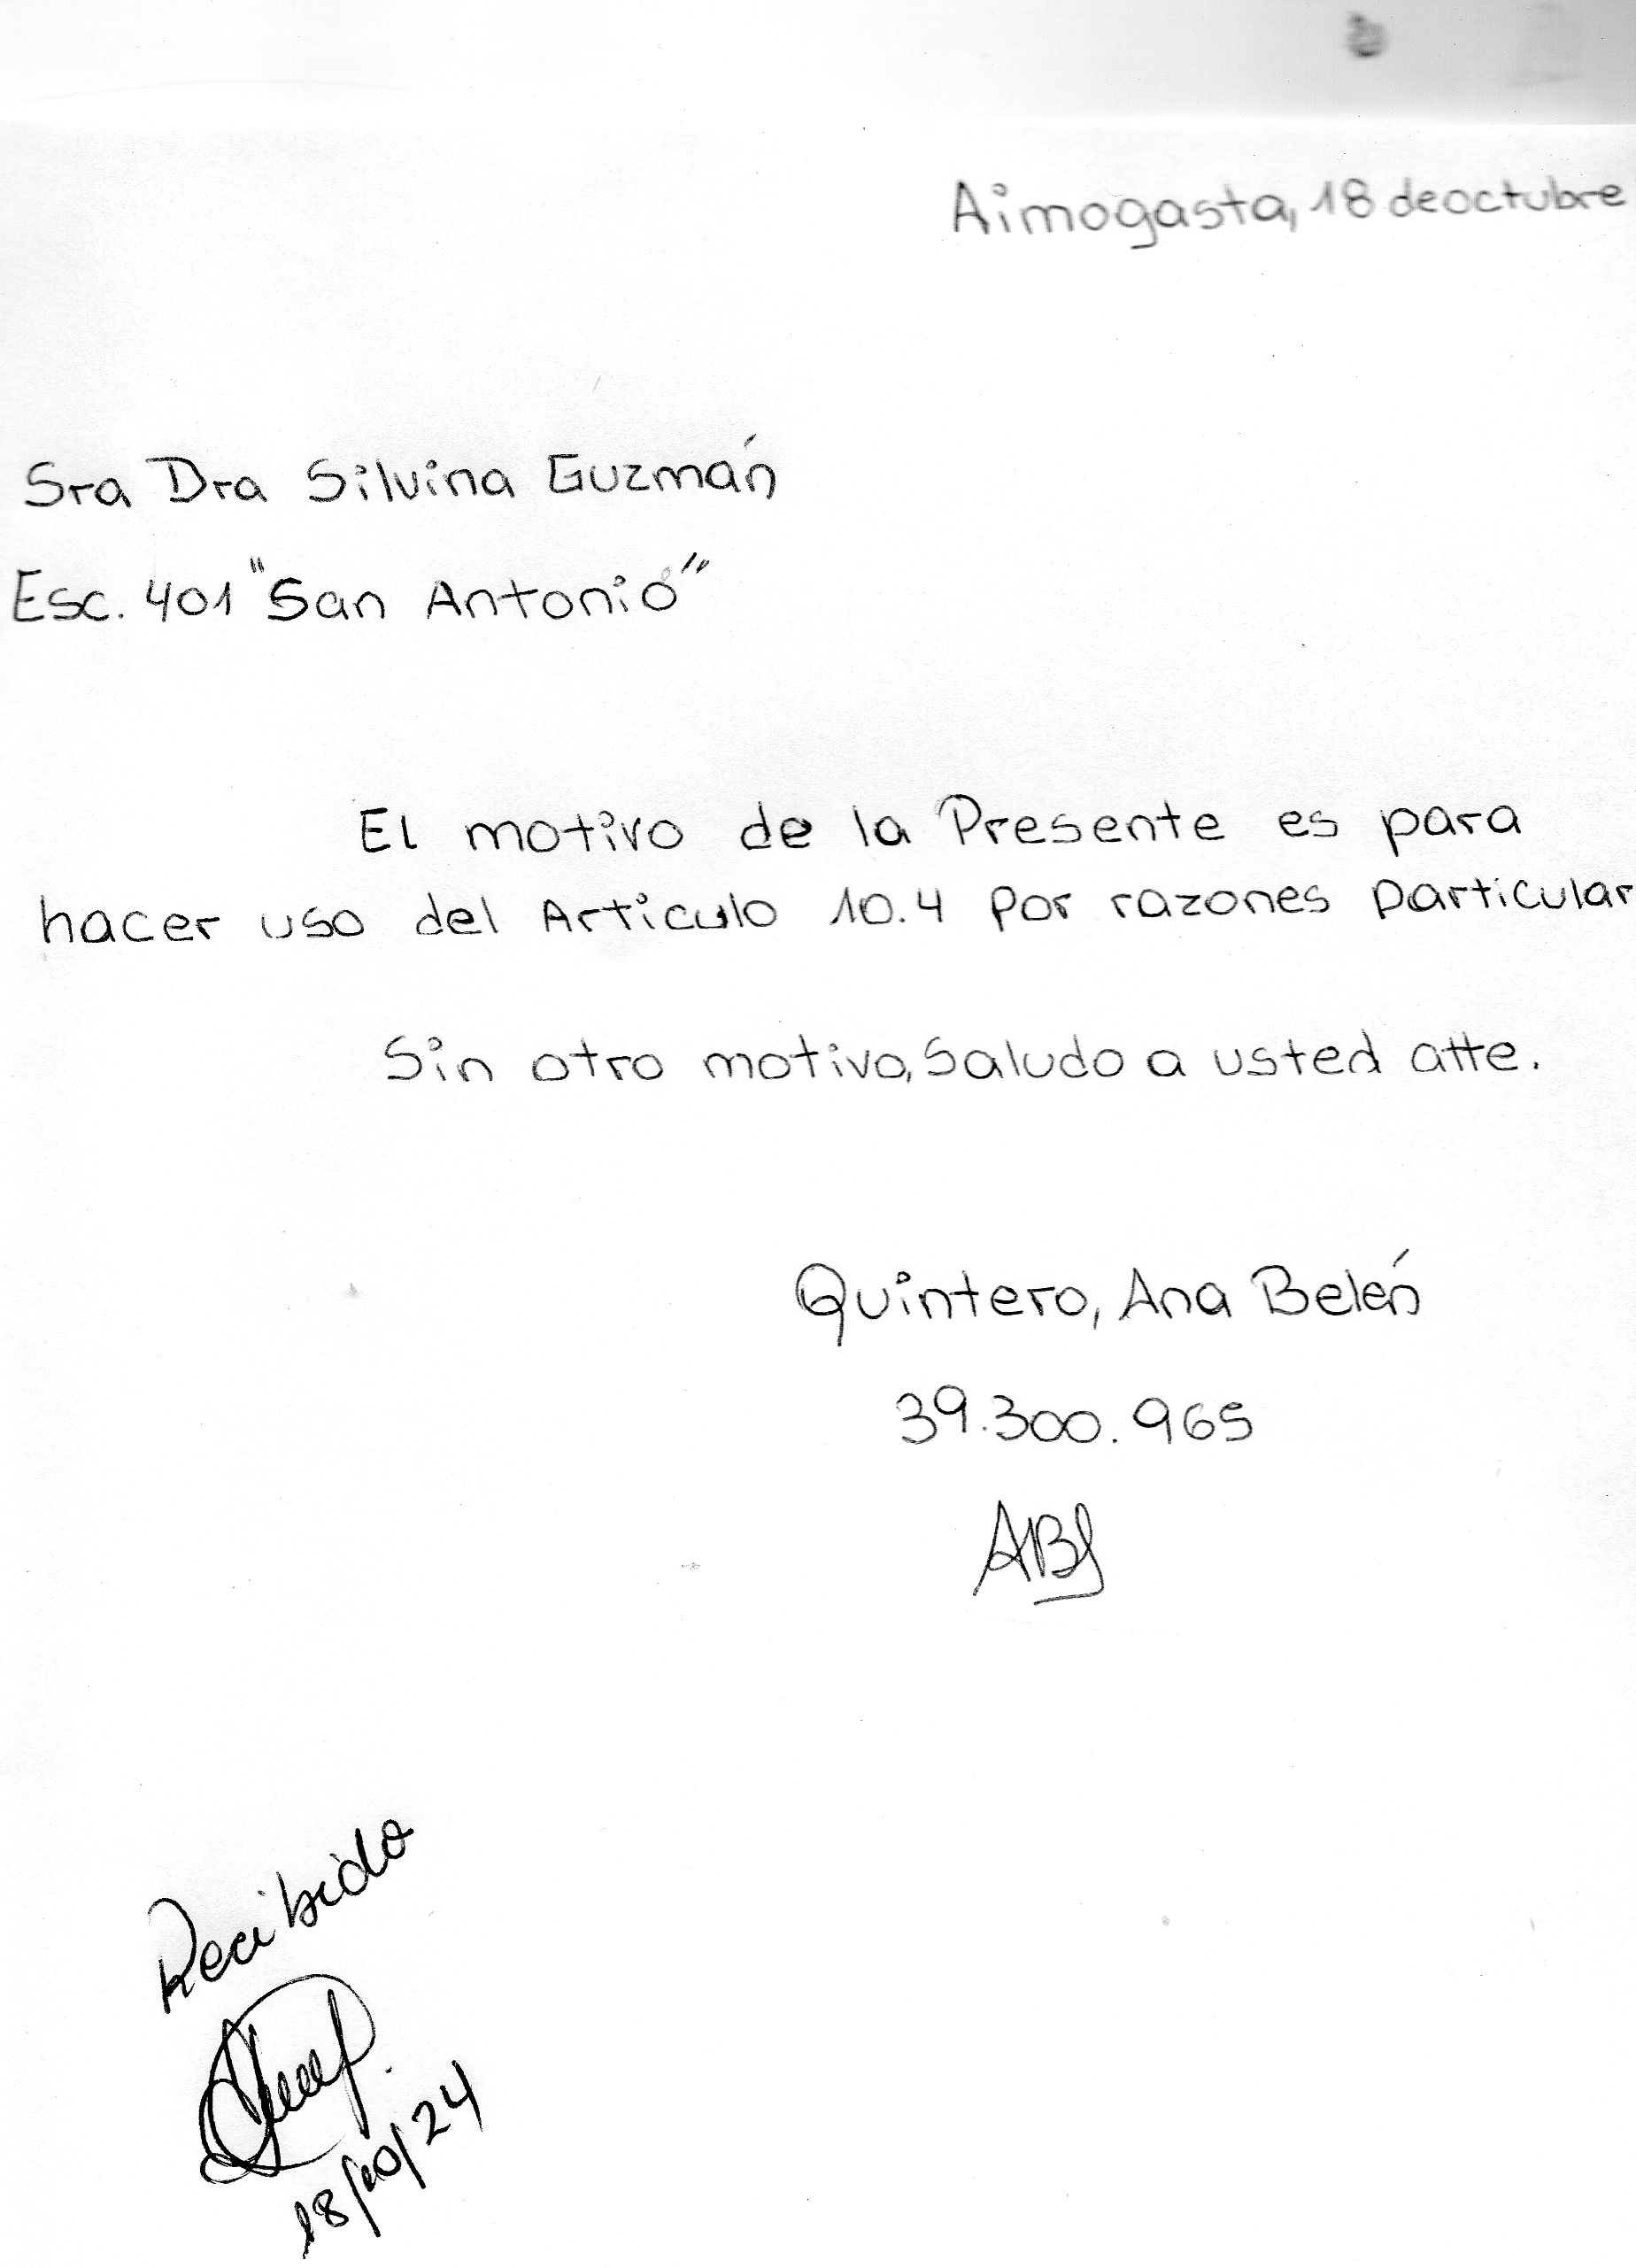 Aimogasta, 18 de octubre
Sra Dra Silvina Guzmán
Esc. 401 "San Antonio"
El motivo de la Presente es para
hacer uso del Articulo 10.4 Por razones Particular
Sin otro motivo, Saludo a usted atte.
Quintero, Ana Belén
39.300.965
ABQ
Recibido
18/10/24